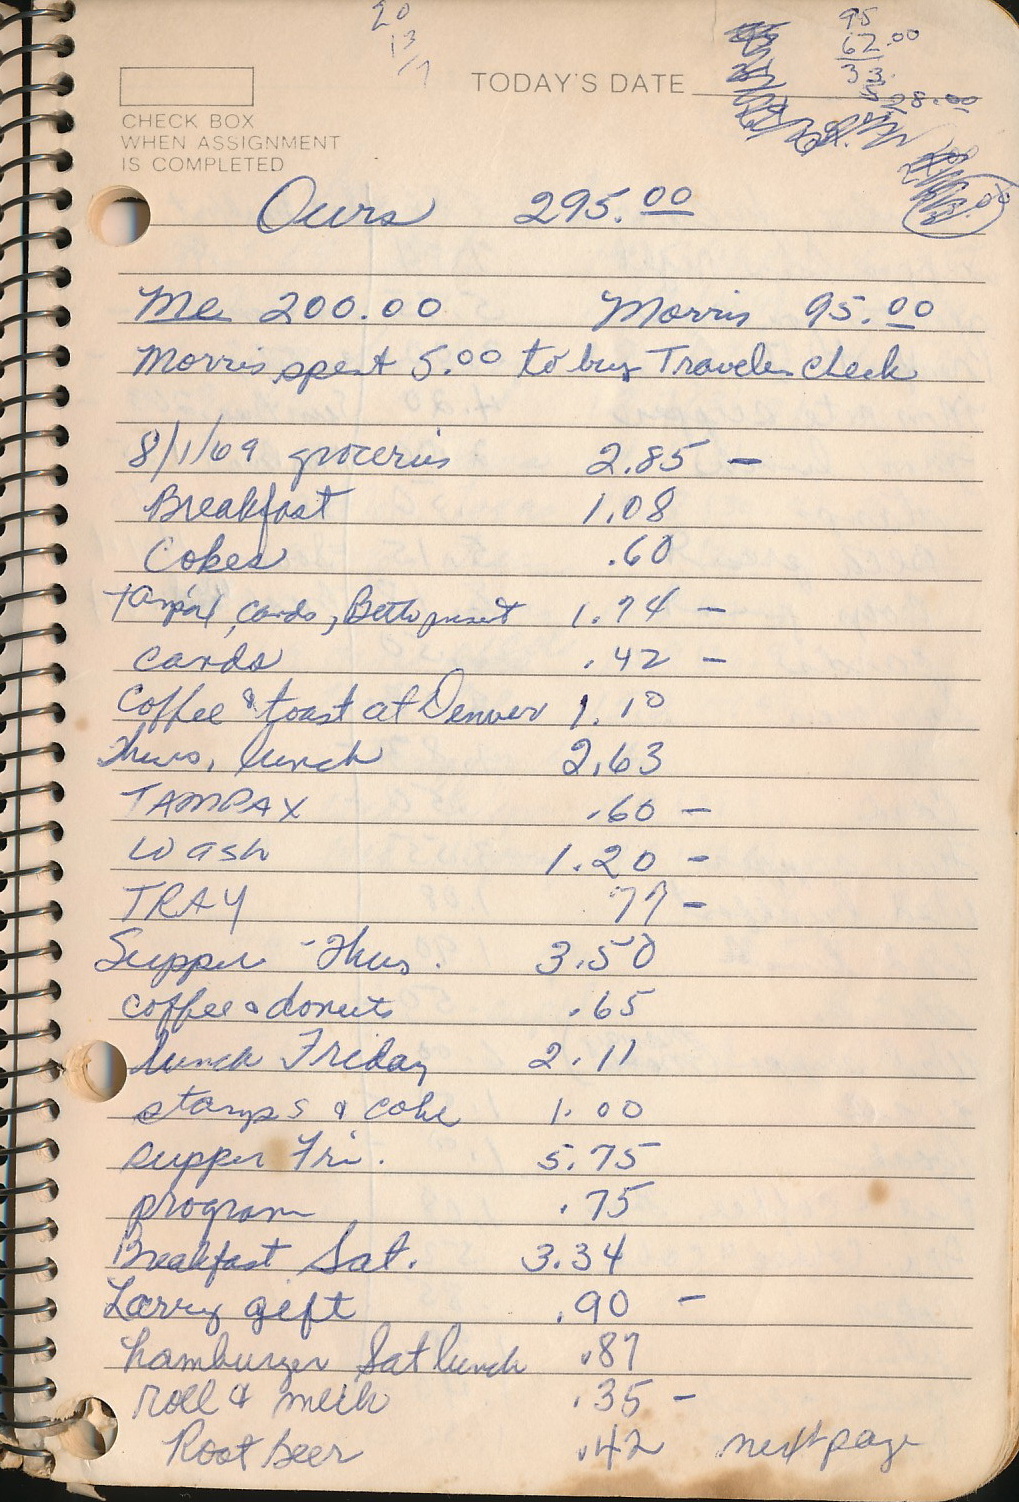 20
13
17
95
62.00
33.
5
28.00
TODAY'S DATE
CHECK BOX
WHEN ASSIGNMENT
IS COMPLETED
Ours 295.00
Me 200.00 Morris 95.00
Morris spent 5.00 to buy Traveler check
8/1/69 groceries 2.85 –
Breakfast 1.08
Cokes .60
cards, Beth present 1.74 –
cards .42 –
Coffee & toast at Denver 1.10
Thurs, lunch 2.63
TAMPAX .60 –
Wash 1.20 –
TRAY 77 –
Supper - Thurs. 3.50
coffee & donuts .65
lunch Friday 2.11
stamps & coke 1.00
supper Fri. 5.75
program .75
Breakfast Sat. 3.34
Larry gift .90 –
hamburger Sat lunch .87
roll & milk .35 –
Root beer .42 next page